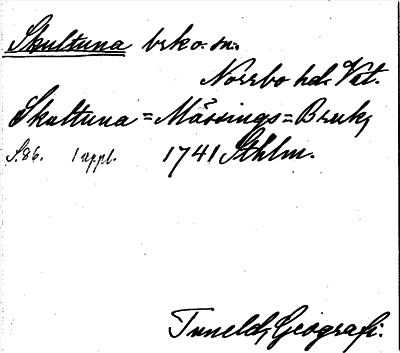 Skultuna brko. sn.
Norrbo hd. Vst.
Skultuna = Mässings = Bruk,
S. 86. 1 uppl. 1741 Sthlm.
Tuneld, Geografi.